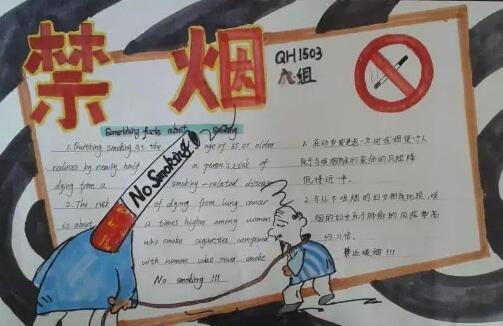 禁烟
QH1503
九组
Something facts about smoking
1. Quitting smoking at the age of 65 or older
reduces by nearly half a person's risk of
dying from a smoking-related disease
2. The risk of dying from lung cancer
is about times higher among women
who smoke cigarettes compared
with women who never smoke.
No smoking !!!
No Smoking
1. 在65岁或更老一点时戒烟使一个人
死于与吸烟相关的疾病的风险降
低将近一半。
2. 与从不吸烟的妇女相比,吸
烟的妇女死于肺癌的风险要高
约11倍。
禁止吸烟!!!